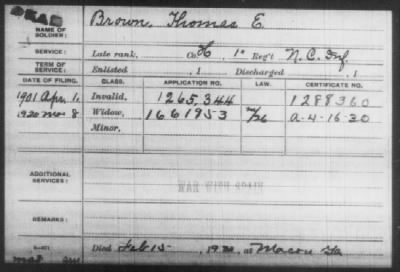 DEAD
NAME OF SOLDIER: Brown, Thomas E.
SERVICE: Late rank, Co. H, 1st Reg't N.C. Inf.
TERM OF SERVICE: Enlisted , 1 Discharged , 1
DATE OF FILING. CLASS. APPLICATION NO. LAW. CERTIFICATE NO.
1901 Apr. 1. Invalid, 1265,344 1288360
1920 Mar 8 Widow, 1661953 A-4-16-30
Minor,
ADDITIONAL SERVICES:
WAR WITH SPAIN
REMARKS:
Died Feb 15, 1920, at Macon Ga